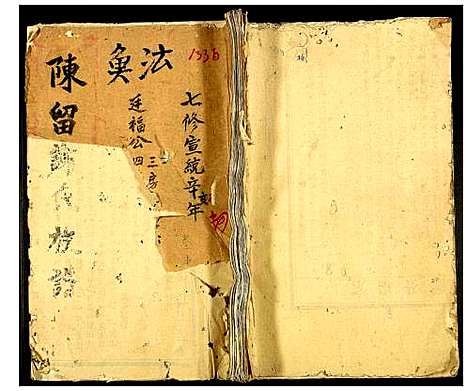 1336
七修宣統辛亥年
法
廷福公四
三房
奐
陳留
族譜